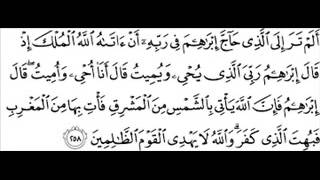 أَلَمْ تَرَ إِلَى ٱلَّذِى حَآجَّ إِبْرَٰهِـۧمَ فِى رَبِّهِۦٓ أَنْ ءَاتَىٰهُ ٱللَّهُ ٱلْمُلْكَ إِذْ
قَالَ إِبْرَٰهِـۧمُ رَبِّىَ ٱلَّذِى يُحْىِۦ وَيُمِيتُ قَالَ أَنَا۠ أُحْىِۦ وَأُمِيتُ ۖ قَالَ
إِبْرَٰهِـۧمُ فَإِنَّ ٱللَّهَ يَأْتِى بِٱلشَّمْسِ مِنَ ٱلْمَشْرِقِ فَأْتِ بِهَا مِنَ ٱلْمَغْرِبِ
فَبُهِتَ ٱلَّذِى كَفَرَ ۗ وَٱللَّهُ لَا يَهْدِى ٱلْقَوْمَ ٱلظَّٰلِمِينَ ٢٥٨